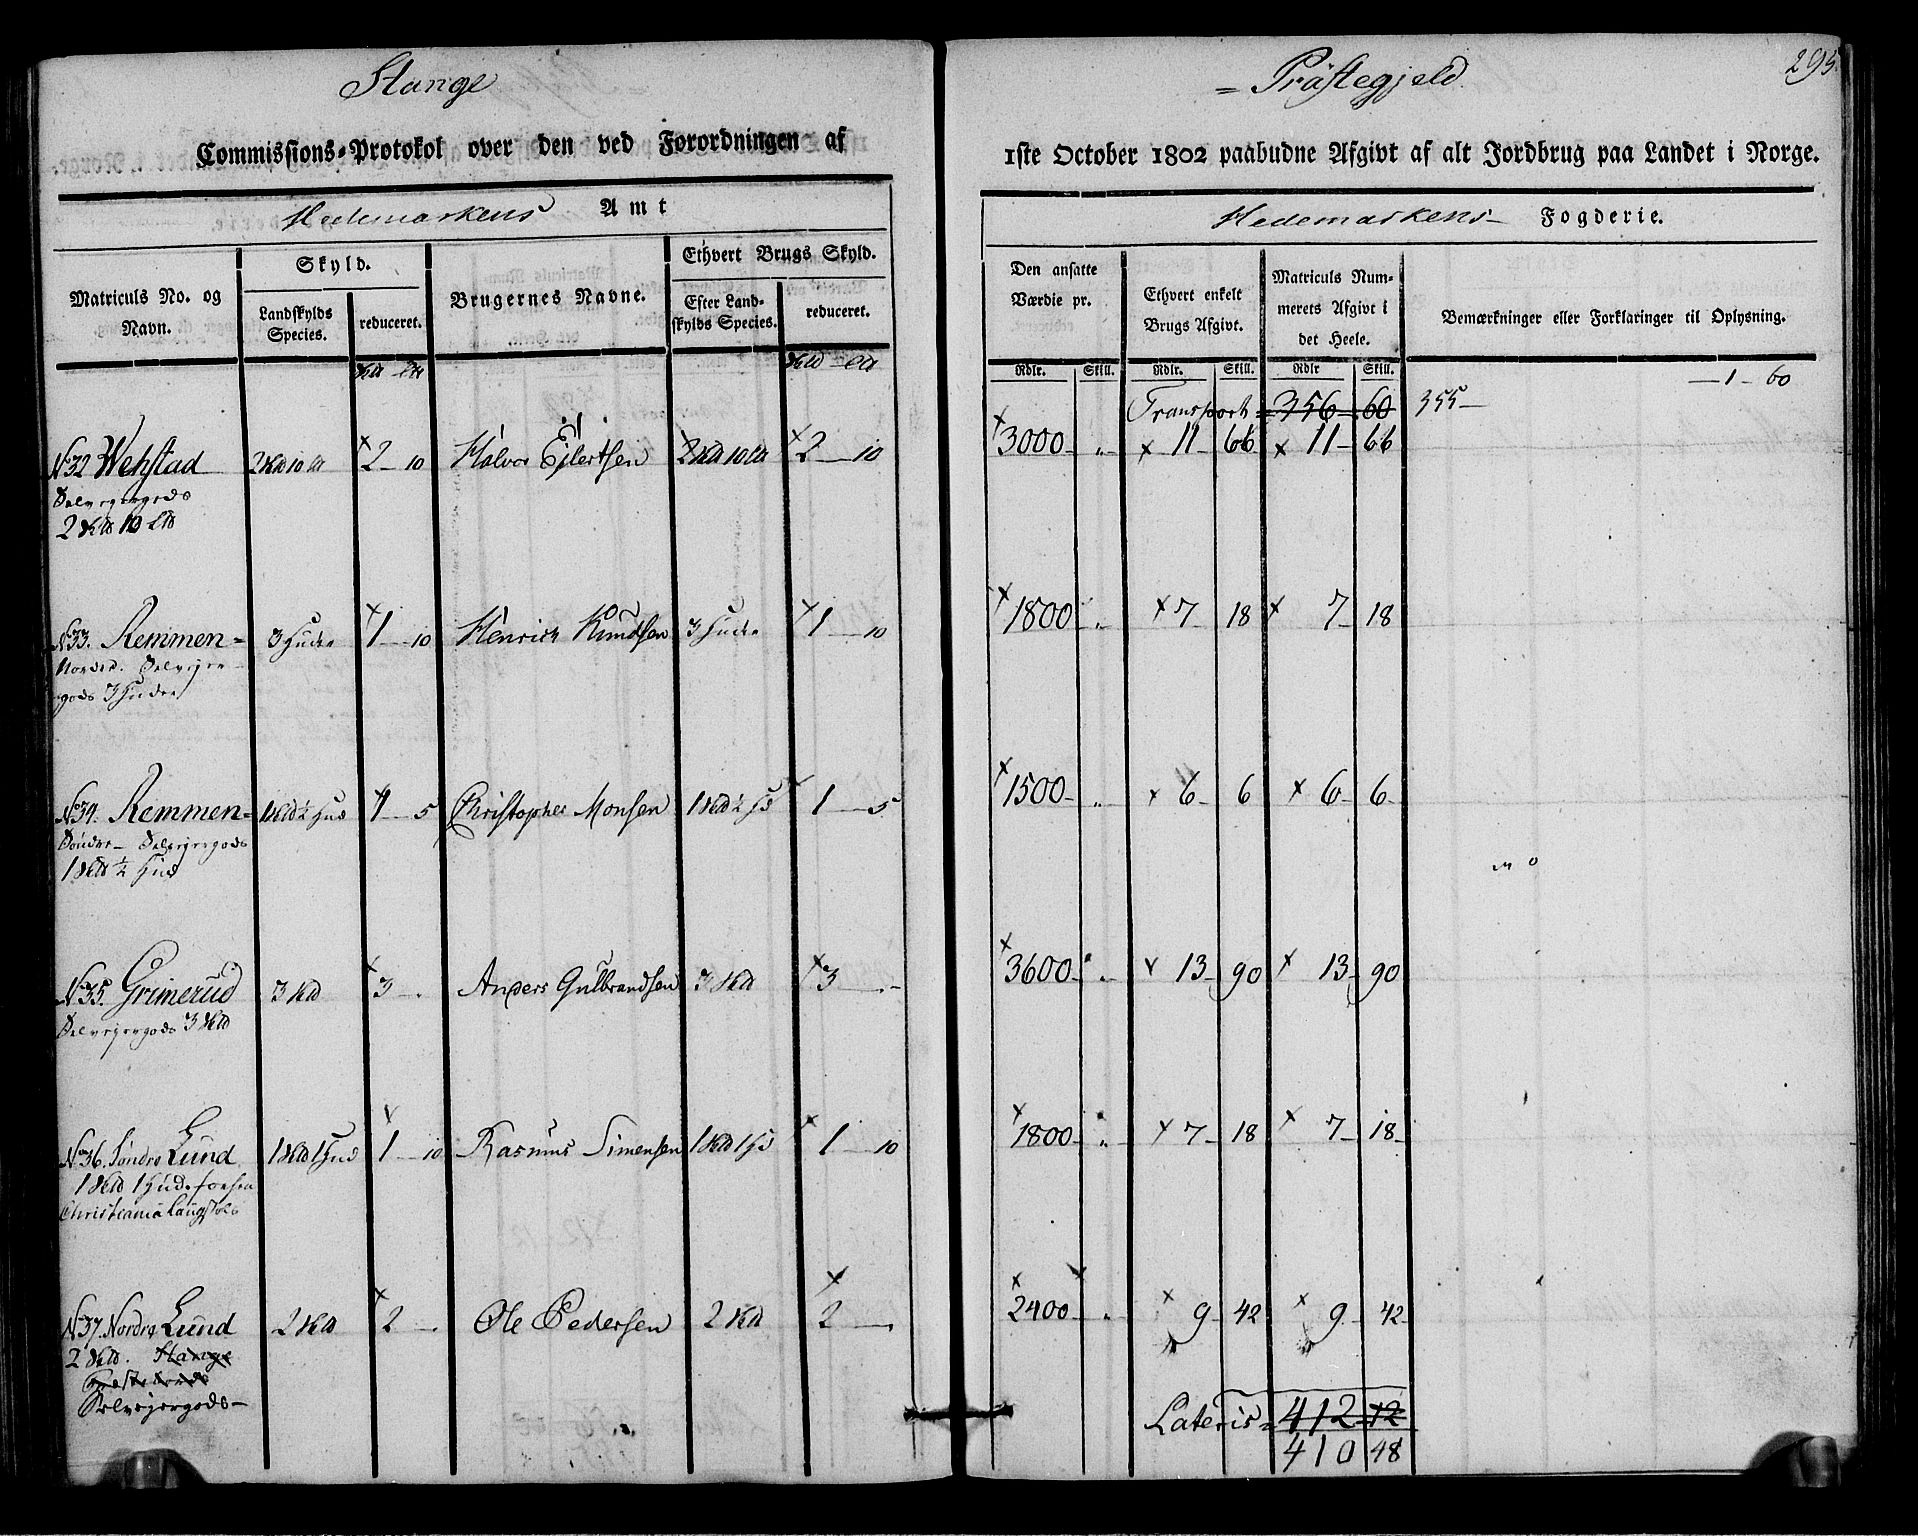 Stange
= Präſtegjeld.
295
Commissions-Protokol over den ved Forordningen af
1ste October 1802 paabudne Afgivt af alt Jordbrug paa Landet i Norge.
Hedemarkens Amt
Hedemarkens Fogderie.
Matriculs No. og Navn.
Skyld.
Landskylds Species.
reduceret.
Brugernes Navne.
Ethvert Brugs Skyld.
Efter Landskylds Species.
reduceret.
Den ansatte Værdie pr.
Ethvert enkelt Brugs Afgivt.
Matriculs Nummerets Afgivt i det Heele.
Bemærkninger eller Forklaringer til Oplysning.
Rdlr. Skill. Rdlr. Skill. Rdlr Skill.
— 1 — 60
Transport = 356 — 60 355 —
No 32 Wehstad 2 10 2 — 10 Halvor Ejlertsen 2 10 2 — 10 3000 — „ 11 — 66 11 — 66
Selvejergods
2 10
No 33. Remmen = 3 Huder 1 — 10 Henrich Knudsen 3 Huder 1 — 10 1800 „ 7 — 18 7 — 18
Nordre. Selvejer
gods 3 Huder
No 34. Remmen = 1 ½ Hud 1 — 5 Christopher Monsen 1 ½ H 1 — 5 1500 — „ 6 — 6 6 — 6 —
Söndre — Selvejergods
1 ½ Hud
No 35. Grimerud 3 3 — . Anders Gulbrandsen 3 3 — . — 3600 — „ 13 — 90 13 — 90
Selvejergods 3
No 36. Söndre Lund 1 1 Hud 1 — 10 Rasmus Simensen 1 1 H 1 — 10 1800 — „ 7 — 18 7 — 18 —
1 1 Hud
Christiania
No 37. Nordre Lund 2 2 — . Ole Pedersen 2 2 — . 2400 — „ 9 — 42 9 — 42 —
2 Stange
Selvejergods —
Lateris = 412 — 12
410 48